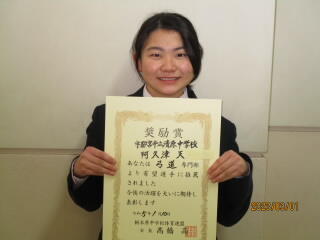 奨励賞
宇都宮市立清原中学校
阿久津 天
あなたは 弓道 専門部
より有望選手に推薦
されました
今後の活躍を大いに期待し
表彰します
栃木県中学校体育連盟
会長 高橋
2023/03/01